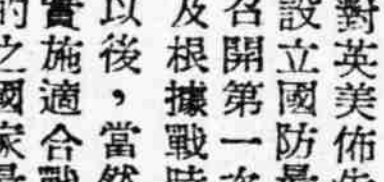 對英美佈
設立國防最
召開第一次
及根據戰時
以後，當然
實施適合戰
的之國家最